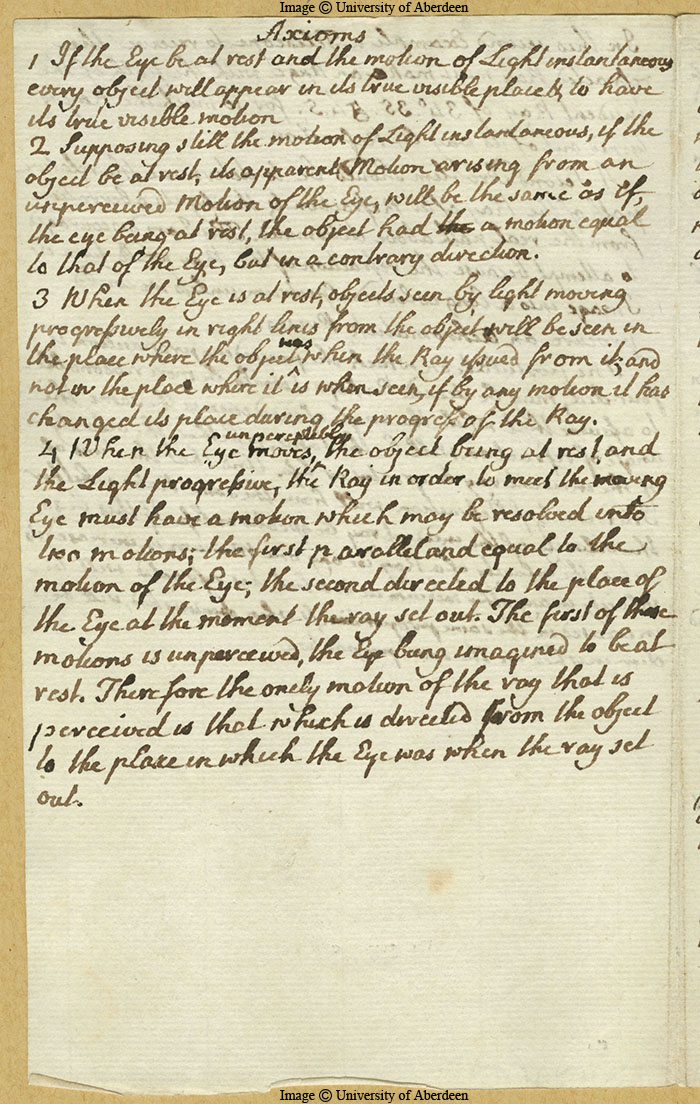 Image © University of Aberdeen
Axioms
1 If the Eye be at rest and the motion of Light instantaneous
every object will appear in its true visible place & to have
its true visible motion
2 Supposing still the motion of Light instantaneous, if the
object be at rest, its apparent Motion arising from an
unperceived Motion of the Eye, will be the same as if,
the eye being at rest, the object had the a motion equal
to that of the Eye, but in a contrary direction.
3 When the Eye is at rest, objects seen by light moving
progressively in right lines from the object will be seen in
the place where the object was when the Ray issued from it; and
not in the place where it is when seen, if by any motion it has
changed its place during the progress of the Ray.
4 When the Eye unperceptibly moves, the object being at rest and
the Light progressive, the Ray in order to meet the moving
Eye must have a motion which may be resolved into
two motions; the first parallel and equal to the
motion of the Eye; the second directed to the place of
the Eye at the moment the ray set out. The first of these
motions is unperceived, the Eye being imagined to be at
rest. Therefore the onely motion of the ray that is
perceived is that which is directed from the object
to the place in which the Eye was when the ray set
out.
Image © University of Aberdeen